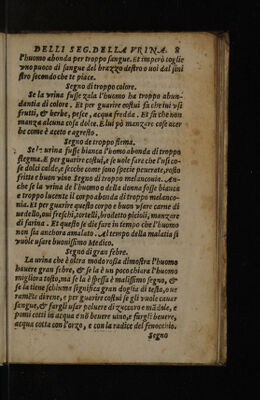 DELLI SEG. DELLA VRINA. 8
l'huomo abonda per troppo sangue. Et imperò toglie
vno puoco di sangue del brazzo destro o uoi dal sini
stro secondo che te piace.
Segno di troppo colore.
Se la vrina fusse zala l'huomo ha troppo abun-
dantia di colore. Et per guarire costui fa che lui vsi
frutti, & herbe, pesce, acqua fredda. Et fa che non
manza alcuna cosa dolce. E lui pò manzare cose acer
be come è aceto e agresto.
Segno de troppo flema.
Se la vrina fusse bianca l'homo abonda di troppo
flegma. E per guarire costui, e se uole fare che l'usi co-
se dolci calde, e secche come sono specie peuerate, rosto
fritto e buon vino. Segno di troppo melanconia. An-
che se la vrina de l'huomo o della donna fosse bianca
e troppo lucente il corpo abonda di troppo melanco-
nia. Et per guarire questo corpo e buon vsare carne di
uedello, oui freschi, tortelli, brodetto picioli, manzare
di farina. Et questo se die fare in tempo che l'huomo
non sia anchora amalato. Al tempo della malatia si
vuole usare buonissimo Medico.
Segno di gran febre.
La urina che è oltra modo rossa dimostra l'huomo
hauere gran febre, & se la è un poco chiara l'huomo
migliora tosto, ma se la è spessa è malissimo segno, &
se la tiene schiuma significa gran doglia di testa, oue
ramēte di rene, e per guarire costui se gli vuole cauar
sangue, & fargli usar poluere di zuccaro e mādole, e
pomi cotti in acqua e nō beuere uino, e fargli beuere,
acqua cotta con l'orzo, e con la radice del fenocchio.
Segno